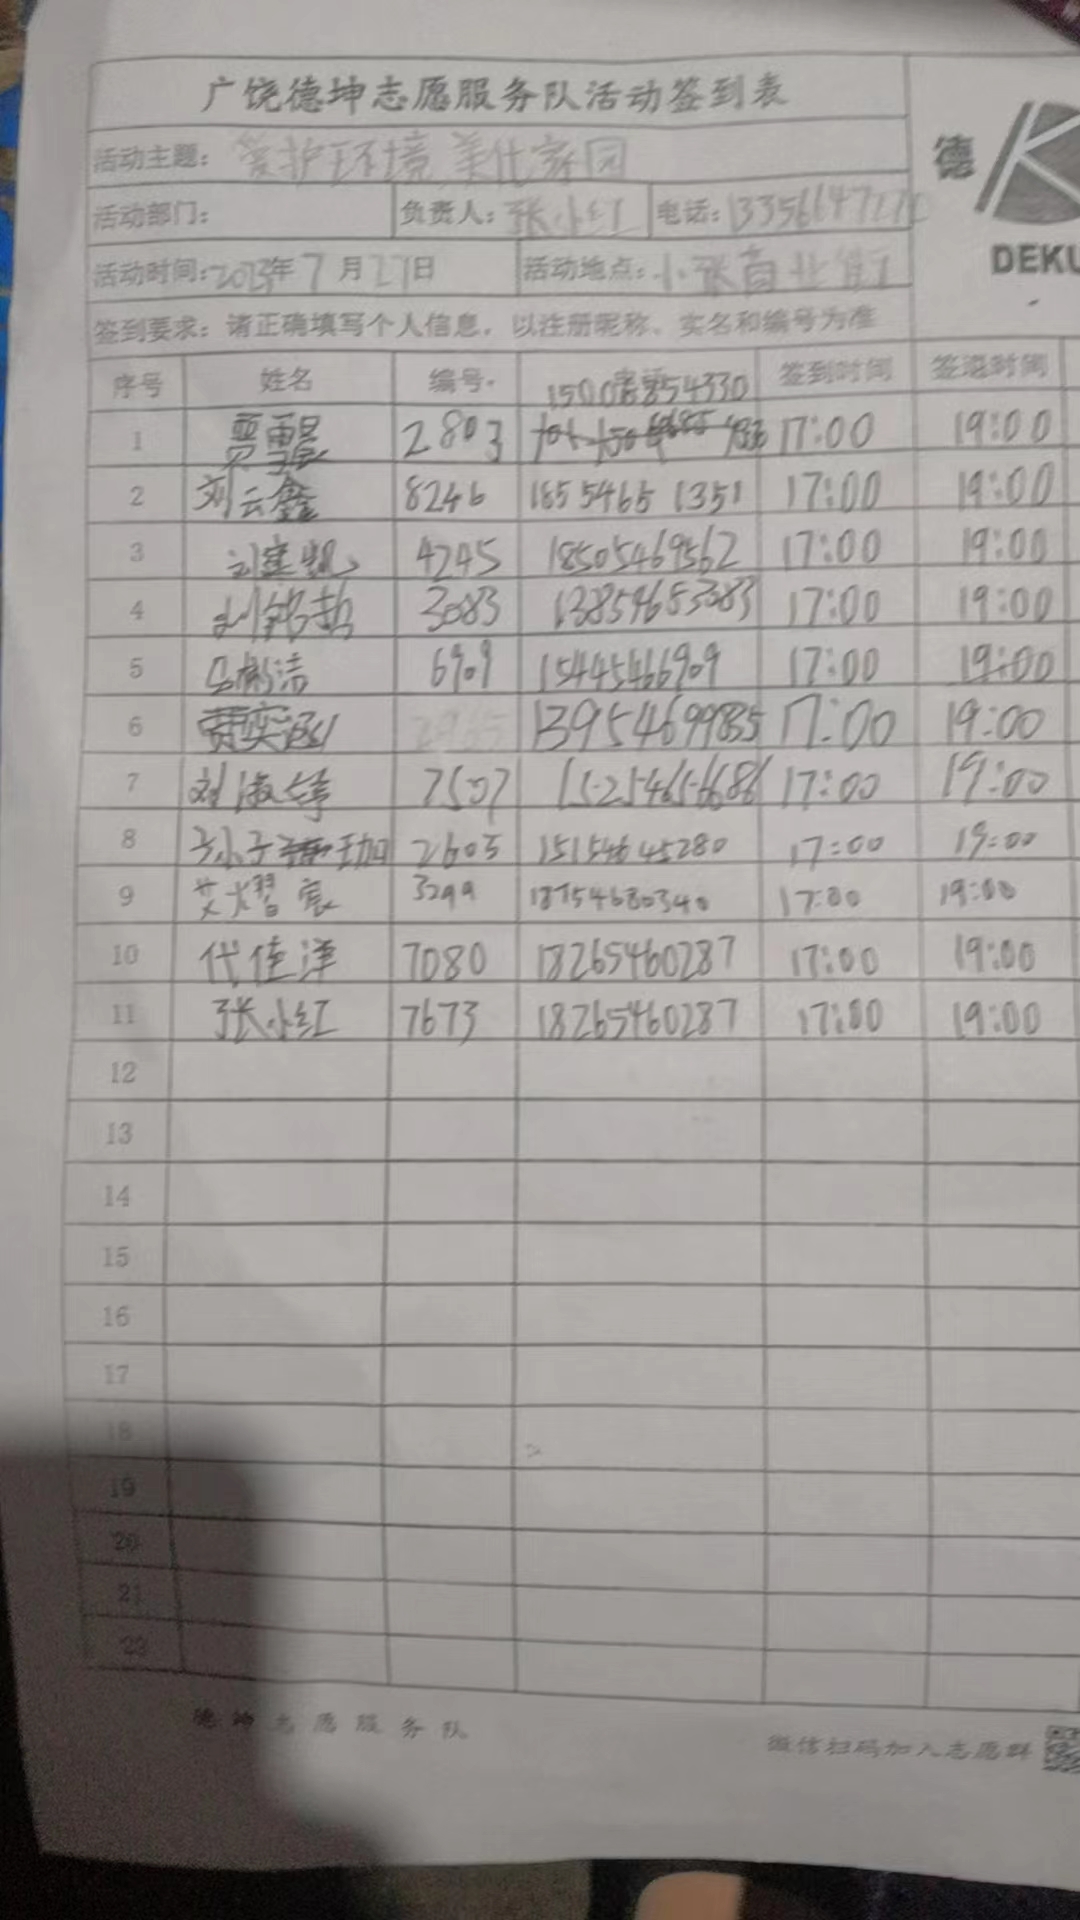 广饶德坤志愿服务队活动签到表
德
DEKU
活动主题: 爱护环境 美化家园
活动部门: 负责人: 张小红 电话:
活动时间: 2023年7月27日 活动地点: 小张 北街
签到要求: 请正确填写个人信息, 以注册昵称、实名和编号为准
序号 姓名 编号 签到时间 签退时间
15006854330
1 贾雪晨 2803 17:00 19:00
2 刘云鑫 8246 18554651351 17:00 19:00
3 刘建凯 4245 18505469562 17:00 19:00
4 刘铭哲 3083 13854653083 17:00 19:00
5 洁 6909 15445466909 17:00 19:00
6 贾奕涵 13954699835 17:00 19:00
7 刘淑华 7507 15254656686 17:00 19:00
8 2603 15154645280 17:00 19:00
9 艾熠宸 3299 18754680340 17:00 19:00
10 代佳泽 7080 18265460287 17:00 19:00
11 张小红 7673 18265460287 17:00 19:00
12
13
14
15
16
17
18
19
20
21
22
德坤志愿服务队 微信扫码加入志愿群